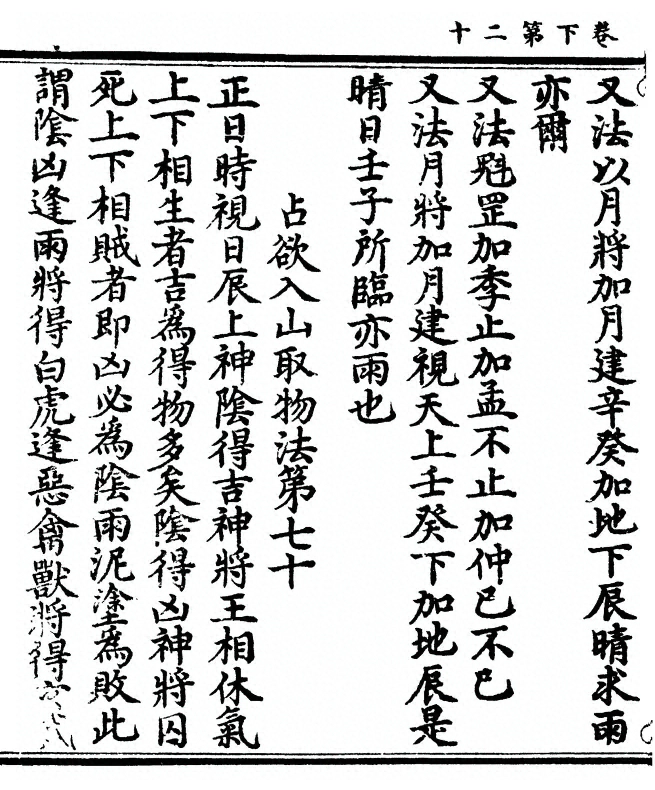 卷下第二十
又法以月將加月建辛癸加地下辰晴求雨
亦爾
又法魁罡加季止加孟不止加仲巳不巳
又法月將加月建視天上壬癸下加地辰是
晴日壬子所臨亦雨也
占欲入山取物法第七十
正日時視日辰上神陰得吉神將王相休氣
上下相生者吉為得物多矣陰得凶神將囚
死上下相賊者即凶必為陰雨泥塗為敗此
謂陰凶逢雨將得白虎逢惡禽獸將得玄武